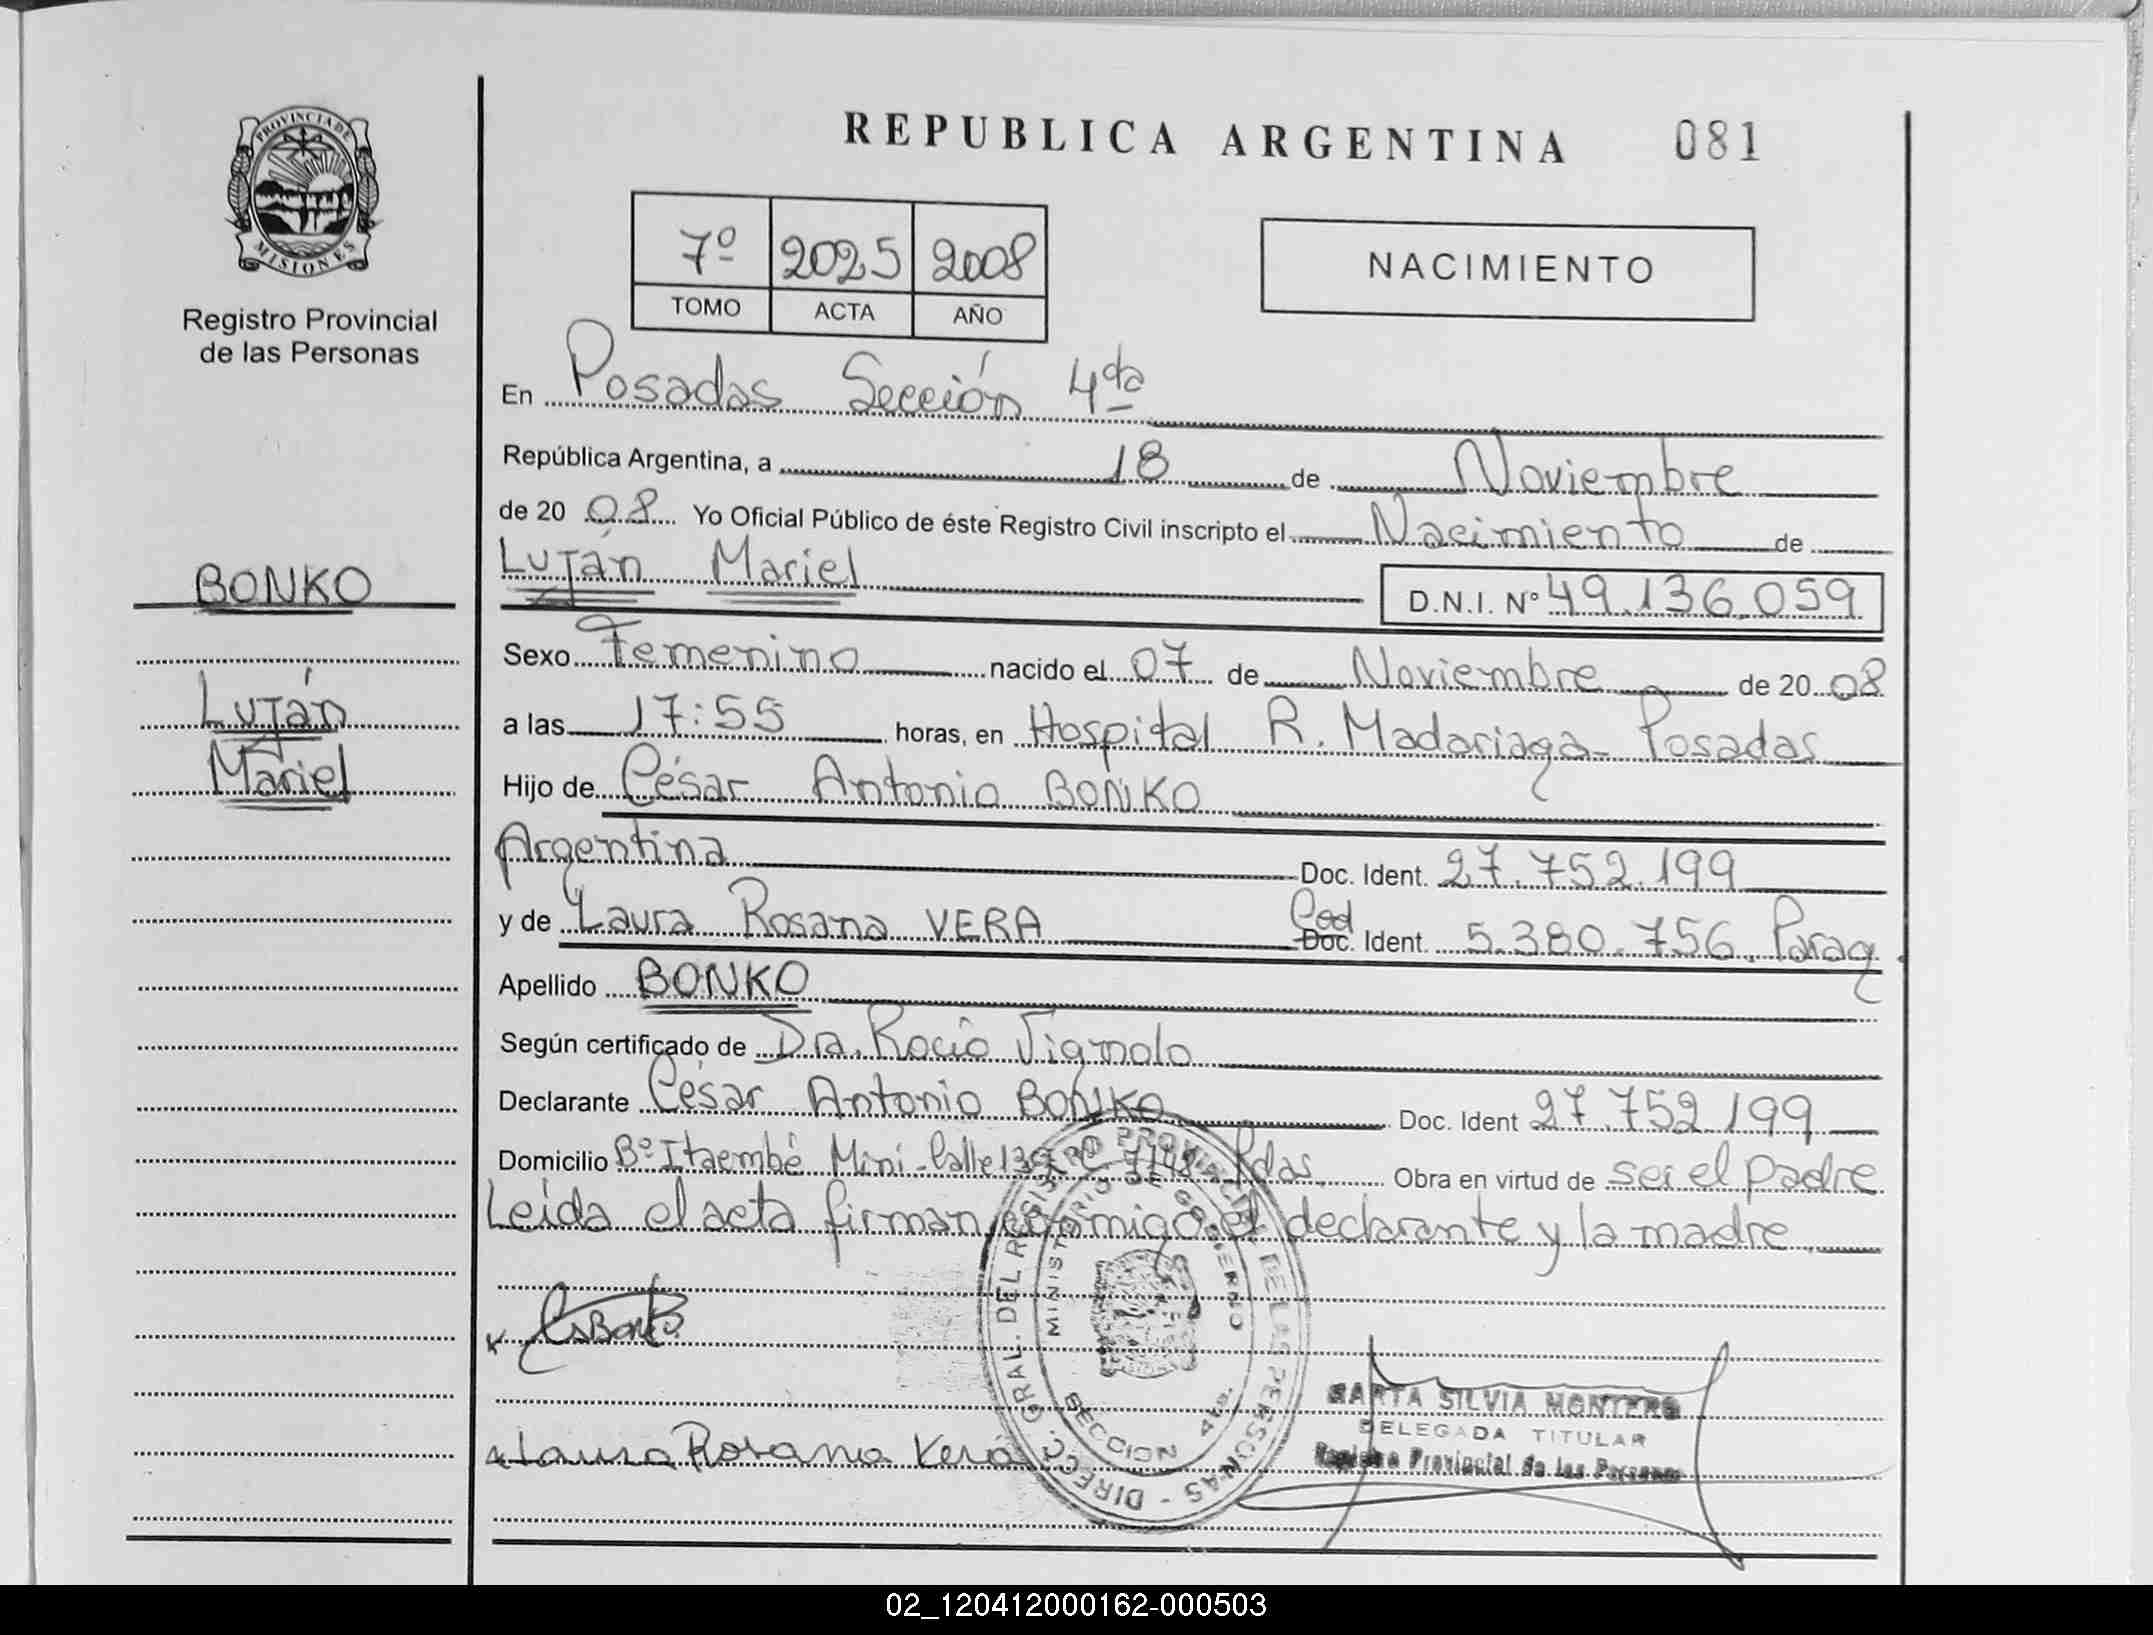 PROVINCIA DE
MISIONES
Registro Provincial
de las Personas
BONKO
Luján
Mariel
REPUBLICA ARGENTINA 081
7º 2025 2008
TOMO ACTA AÑO
NACIMIENTO
En Posadas Sección 4ta
República Argentina, a 18 de Noviembre
de 20 08 Yo Oficial Público de éste Registro Civil inscripto el Nacimiento de
Luján Mariel D.N.I. Nº 49.136.059
Sexo Femenino nacido el 07 de Noviembre de 20 08
a las 17:55 horas, en Hospital R. Madariaga - Posadas
Hijo de César Antonio BONKO
Argentina Doc. Ident. 27.752.199
y de Laura Rosana VERA Ced Doc. Ident. 5.380.756. Parag.
Apellido BONKO
Según certificado de Dra. Rocío Vignolo
Declarante César Antonio BONKO Doc. Ident 27.752.199
Domicilio Bº Itaembé Miní - Calle Pdas. Obra en virtud de ser el padre
Leída el acta firman conmigo el declarante y la madre
Laura Rosana Vera
DIRECC. GRAL. DEL REGISTRO PROVINCIAL DE LAS PERSONAS -
MINISTERIO DE GOBIERNO
SECCION 4ta.
SARTA SILVIA MONTERO
DELEGADA TITULAR
Registro Provincial de las Personas
02_120412000162-000503